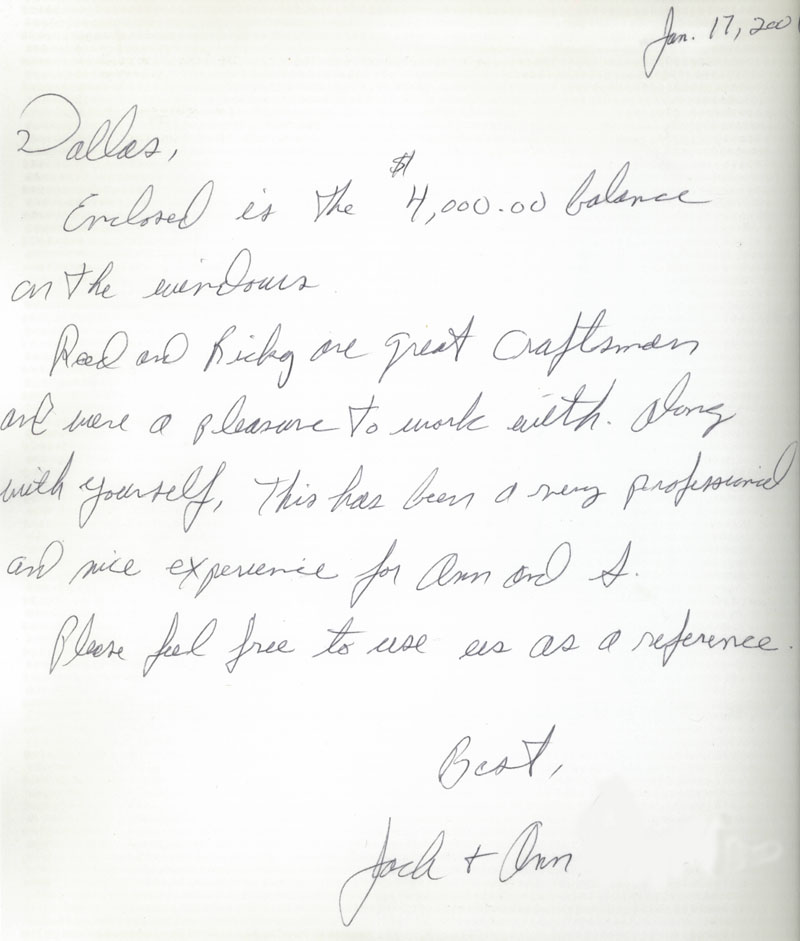 Jan. 17, 200
Dallas,
Enclosed is the $4,000.00 balance
on the windows
Reed and Ricky are great craftsmen
and were a pleasure to work with. Along
with yourself, This has been a very professional
and nice experience for Ann and I.
Please feel free to use us as a reference.
Best,
Jack + Ann